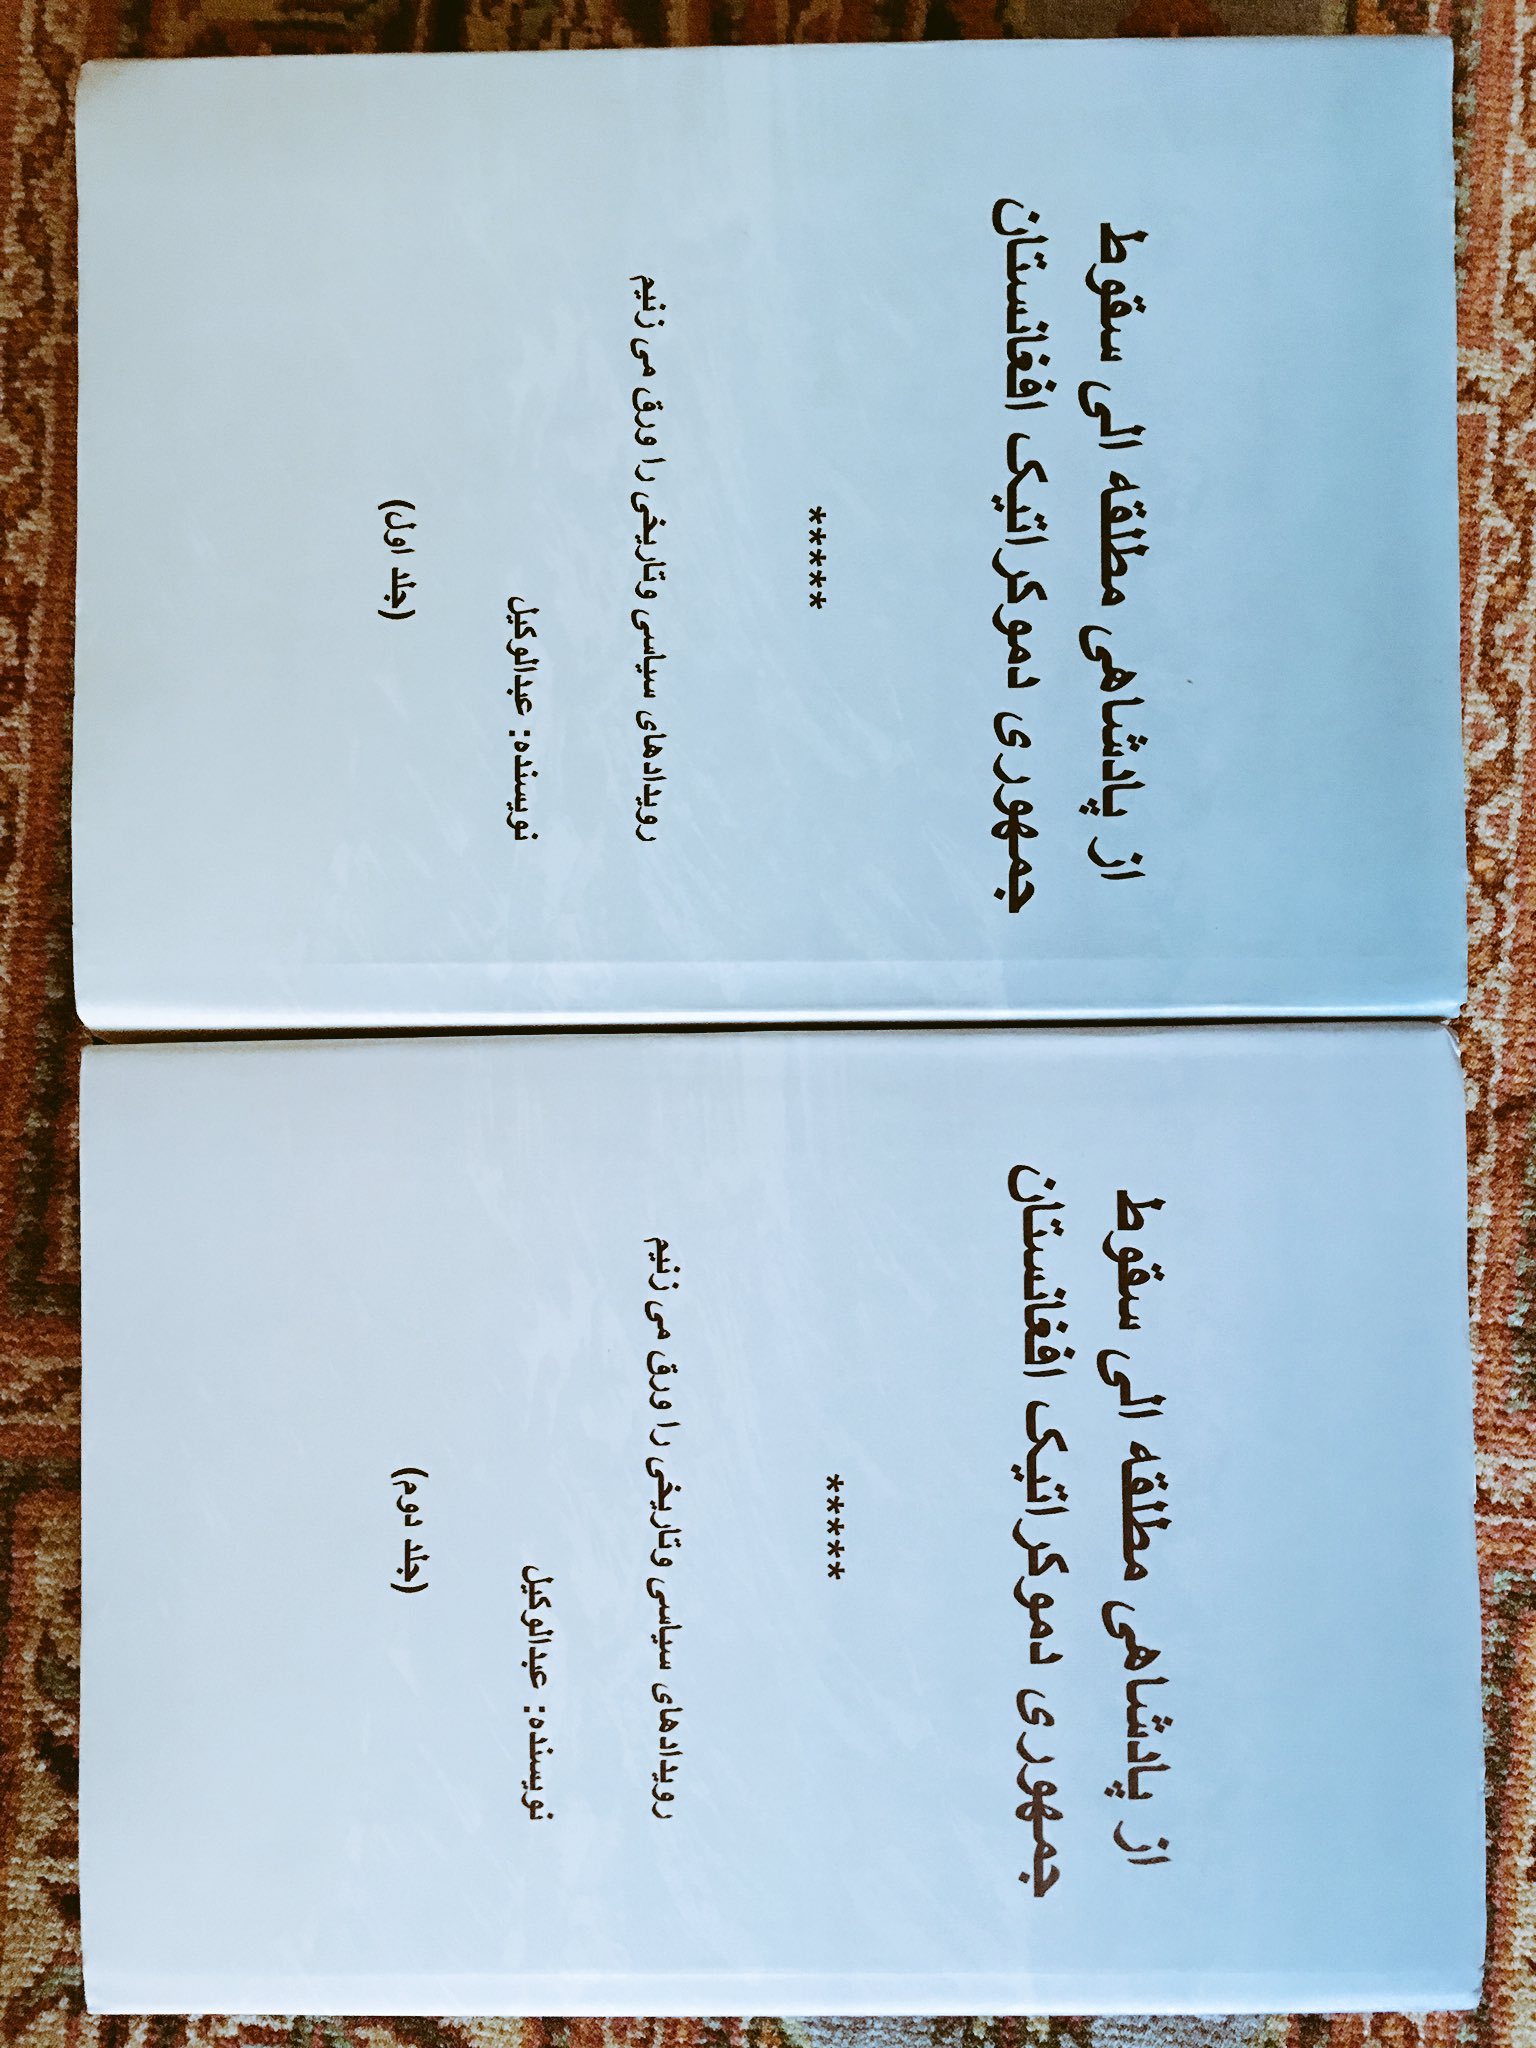 از پادشاهی مطلقه الی سقوط
جمهوری دموکراتیک افغانستان
*****
رویدادهای سیاسی وتاریخی را ورق می زنیم
نویسنده: عبدالوکیل
(جلد اول)
از پادشاهی مطلقه الی سقوط
جمهوری دموکراتیک افغانستان
*****
رویدادهای سیاسی وتاریخی را ورق می زنیم
نویسنده: عبدالوکیل
(جلد دوم)